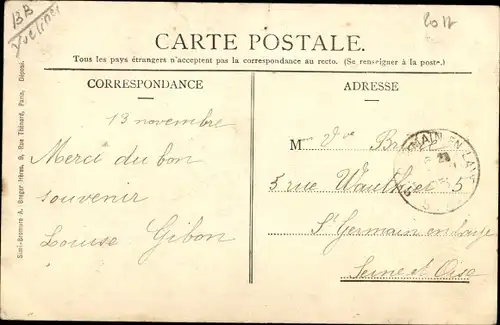 CARTE POSTALE.
Tous les pays étrangers n'acceptent pas la correspondance au recto. (Se renseigner à la poste.)
CORRESPONDANCE
13 novembre
Merci du bon
souvenir
Louise Gibon
ADRESSE
Mme Vve
5 rue Wauthier 5
St Germain en Laye
Seine et Oise
Simi-Bromure A. Breger frères, 9, Rue Thénard, Paris, Déposé.